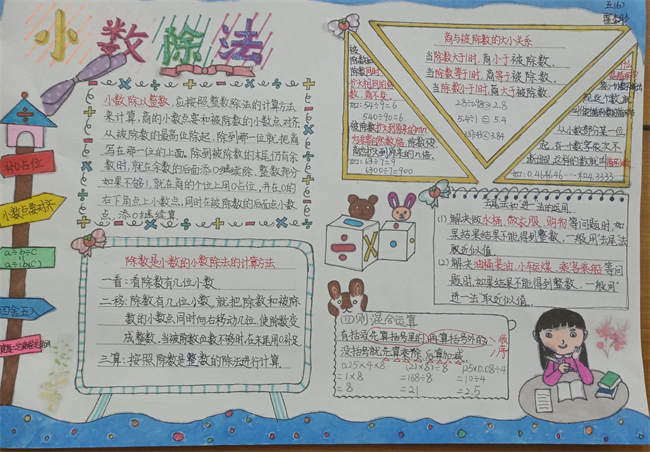 五(6)
小数除法
小数除以整数,应按照整数除法的计算方法
来计算,商的小数点要和被除数的小数点对齐
从被除数的最高位除起,除到哪一位就把商
写在那一位的上面,除到被除数的末尾仍有余
数时,就在余数的后面添0继续除,整数部分
如果不够1,就在商的个位上用0占位,并在0的
右下角点上小数点,同时在被除数的后面点小数
点,添0继续算
商与被除数的大小关系
当除数大于1时,商小于被除数,
当除数等于1时,商等于被除数,
当除数小于1时,商大于被除数
5.4÷1=5.4
54÷9=6
540÷90=6
63÷7=9
6300÷7=900
从小数部分某一位
起,各一个数字依次不
小数点要对齐
四舍五入
除数是小数的小数除法的计算方法
一看:看除数有几位小数
二移:除数有几位小数,就把除数和被除
数的小数点同时向右移动几位,使除数变
成整数,当被除数位数不够时,在末尾用0补足
三算:按照除数是整数的除法进行计算
(1)解决做水桶,做衣服,购物等问题时,如
果结果结果不能得到整数,一般用“去尾法”
取近似值
(2)解决油桶装油,小车运煤,乘客乘船等问
题时,如结果不能得到整数,一般用
“进一法”取近似值.
四则混合运算
有括号先算括号里的,再算括号外的
没括号就先算乘除,后算加减
顺序
0.25×4×8
=1×8
=8
=168÷8
=21
=10÷4
=2.5